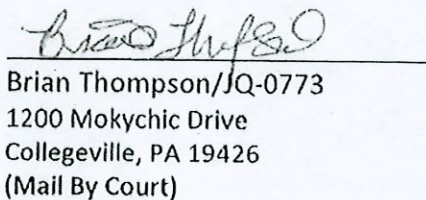 Brian Thompson/JQ-0773
1200 Mokychic Drive
Collegeville, PA 19426
(Mail By Court)